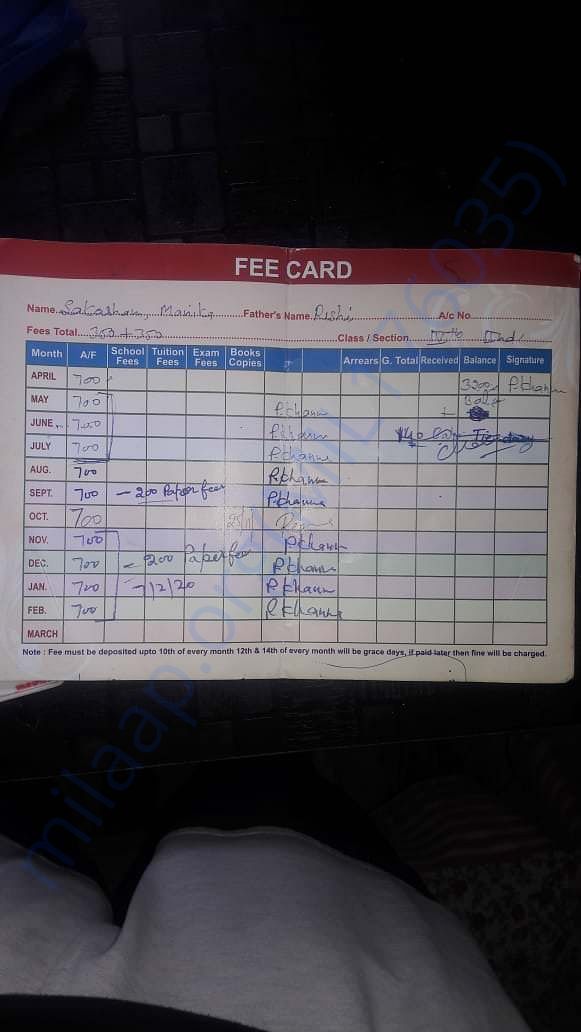 FEE CARD
Name Saksham, Manika Father's Name Rishi A/c No
Fees Total 350 + 350 Class / Section IVth IInd
Month A/F School Fees Tuition Fees Exam Fees Books Copies Arrears G. Total Received Balance Signature
APRIL 700 P.khanna
MAY 700 P.khanna
JUNE 700 P.khanna
JULY 700 P.khanna
AUG. 700 P.khanna
SEPT. 700 - 200 Paper fee P.khanna
OCT. 700
NOV. 700 P.khanna
DEC. 700 - 200 Paper fee P.khanna
JAN. 700 P.khanna
FEB. 700 P.khanna
MARCH
Note : Fee must be deposited upto 10th of every month 12th & 14th of every month will be grace days, if paid later then fine will be charged.